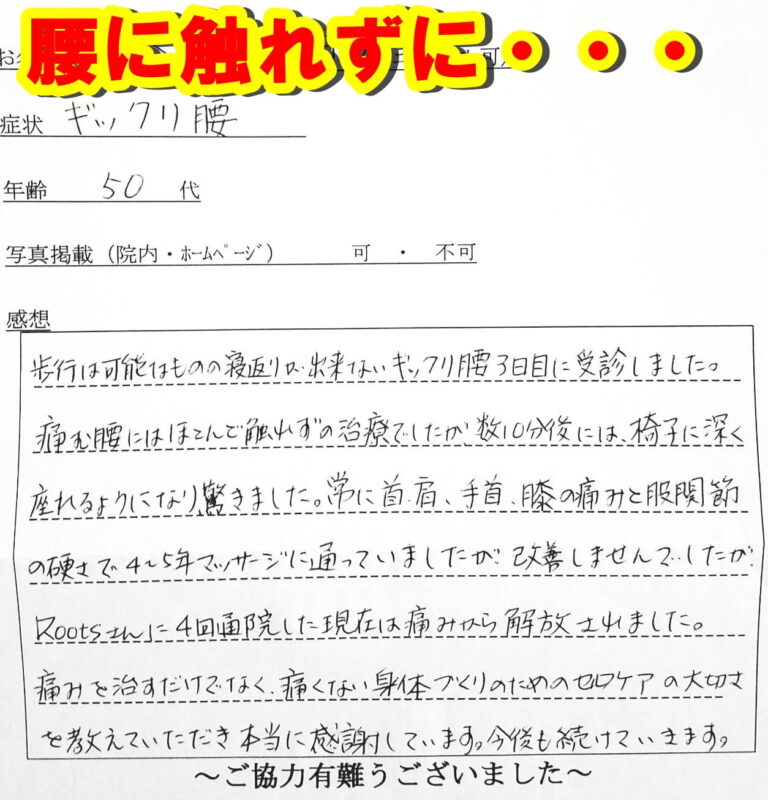 腰に触れずに・・・
症状 ギックリ腰
年齢 50 代
写真掲載（院内・ホームページ） 可 ・ 不可
感想
歩行は可能なものの寝返りが出来ないギックリ腰3日目に受診しました。
痛む腰にはほとんど触れずの治療でしたが、数10分後には、椅子に深く
座れるようになり、驚きました。常に首、肩、手首、膝の痛みと股関節
の硬さで4~5年マッサージに通っていましたが、改善しませんでしたが、
Rootsさんに4回通院した現在は痛みから解放されました。
痛みを治すだけでなく、痛くない身体づくりのためのセロケアの大切さ
を教えていただき本当に感謝しています。今後も続けていきます。
～ご協力有難うございました～